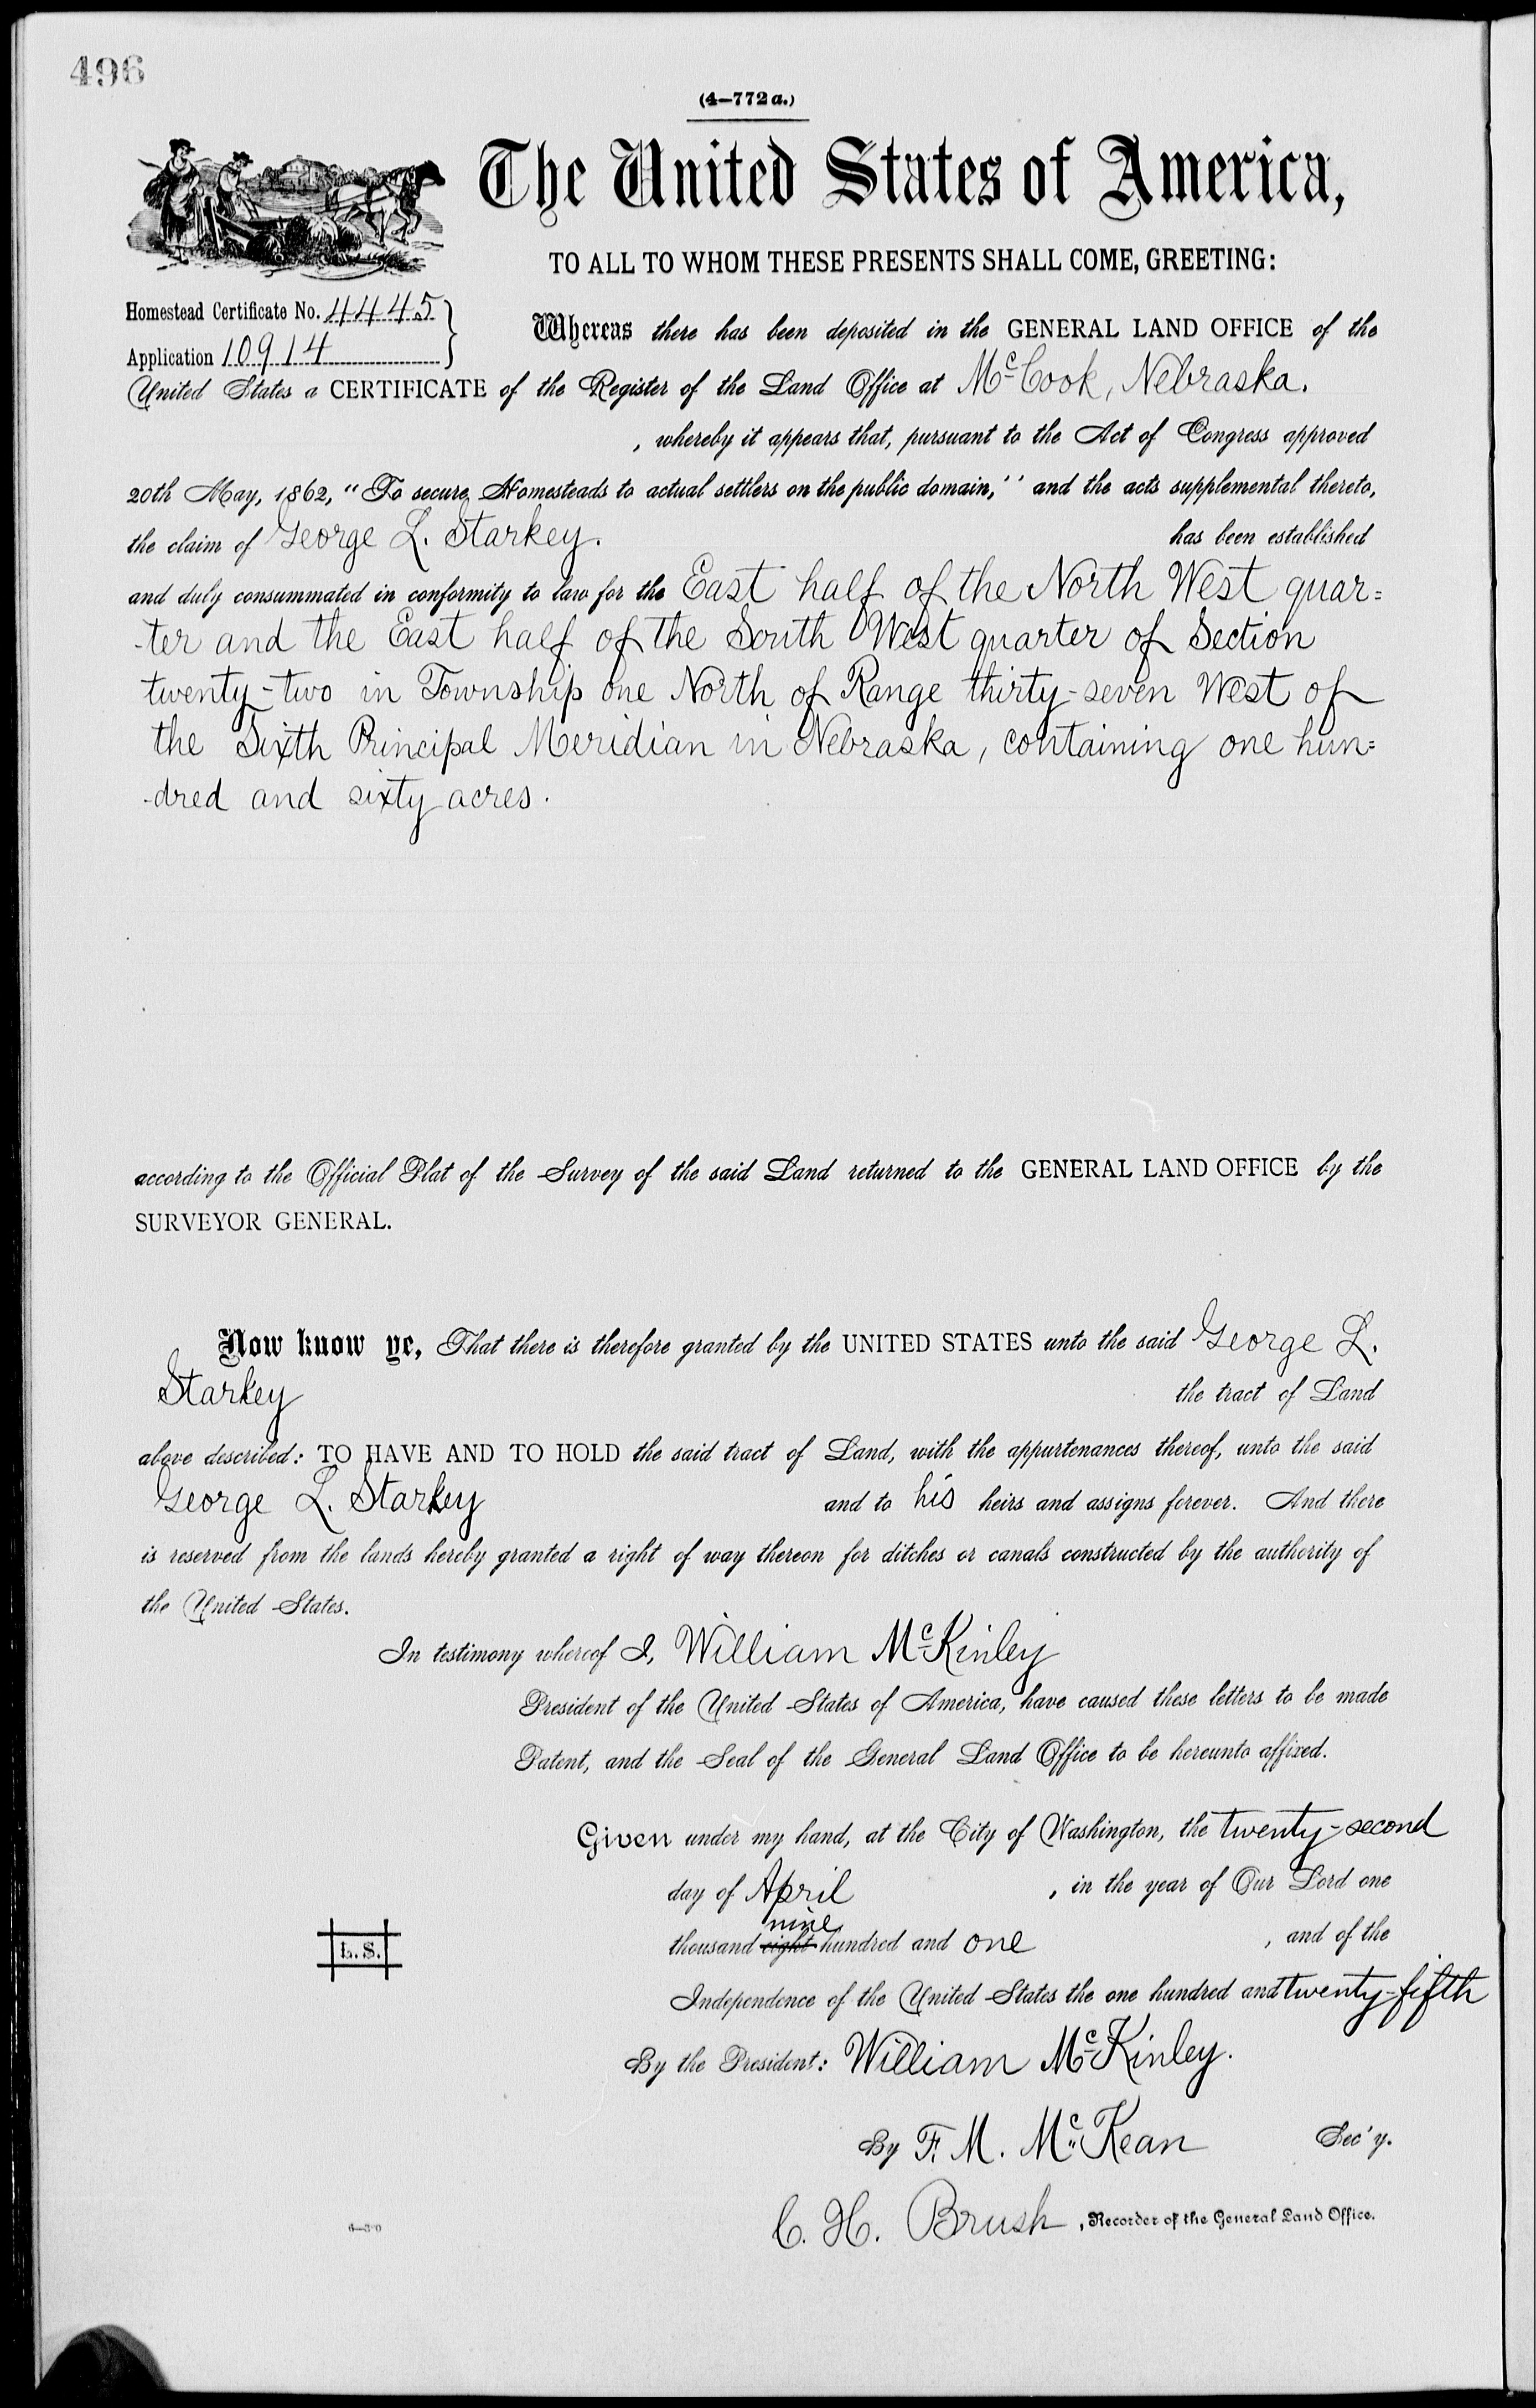 496
(4—772 a.)
The United States of America,
TO ALL TO WHOM THESE PRESENTS SHALL COME, GREETING:
Homestead Certificate No. 4445
Application 10914
Whereas there has been deposited in the GENERAL LAND OFFICE of the
United States a CERTIFICATE of the Register of the Land Office at McCook, Nebraska.
, whereby it appears that, pursuant to the Act of Congress approved
20th May, 1862, "To secure Homesteads to actual settlers on the public domain," and the acts supplemental thereto,
the claim of George L. Starkey. has been established
and duly consummated in conformity to law for the East half of the North West quar=
-ter and the East half of the South West quarter of Section
twenty-two in Township one North of Range thirty-seven West of
the Sixth Principal Meridian in Nebraska, containing one hun=
-dred and sixty acres.
according to the Official Plat of the Survey of the said Land returned to the GENERAL LAND OFFICE by the
SURVEYOR GENERAL.
Now know ye, That there is therefore granted by the UNITED STATES unto the said George L.
Starkey the tract of Land
above described: TO HAVE AND TO HOLD the said tract of Land, with the appurtenances thereof, unto the said
George L. Starkey and to his heirs and assigns forever. And there
is reserved from the lands hereby granted a right of way thereon for ditches or canals constructed by the authority of
the United States.
In testimony whereof I, William McKinley
President of the United States of America, have caused these letters to be made
Patent, and the Seal of the General Land Office to be hereunto affixed.
Given under my hand, at the City of Washington, the twenty-second
day of April , in the year of Our Lord one
nine
thousand eight hundred and one , and of the
L. S.
Independence of the United States the one hundred and twenty-fifth
By the President: William McKinley.
By F. M. McKean Sec'y.
C. H. Brush , Recorder of the General Land Office.